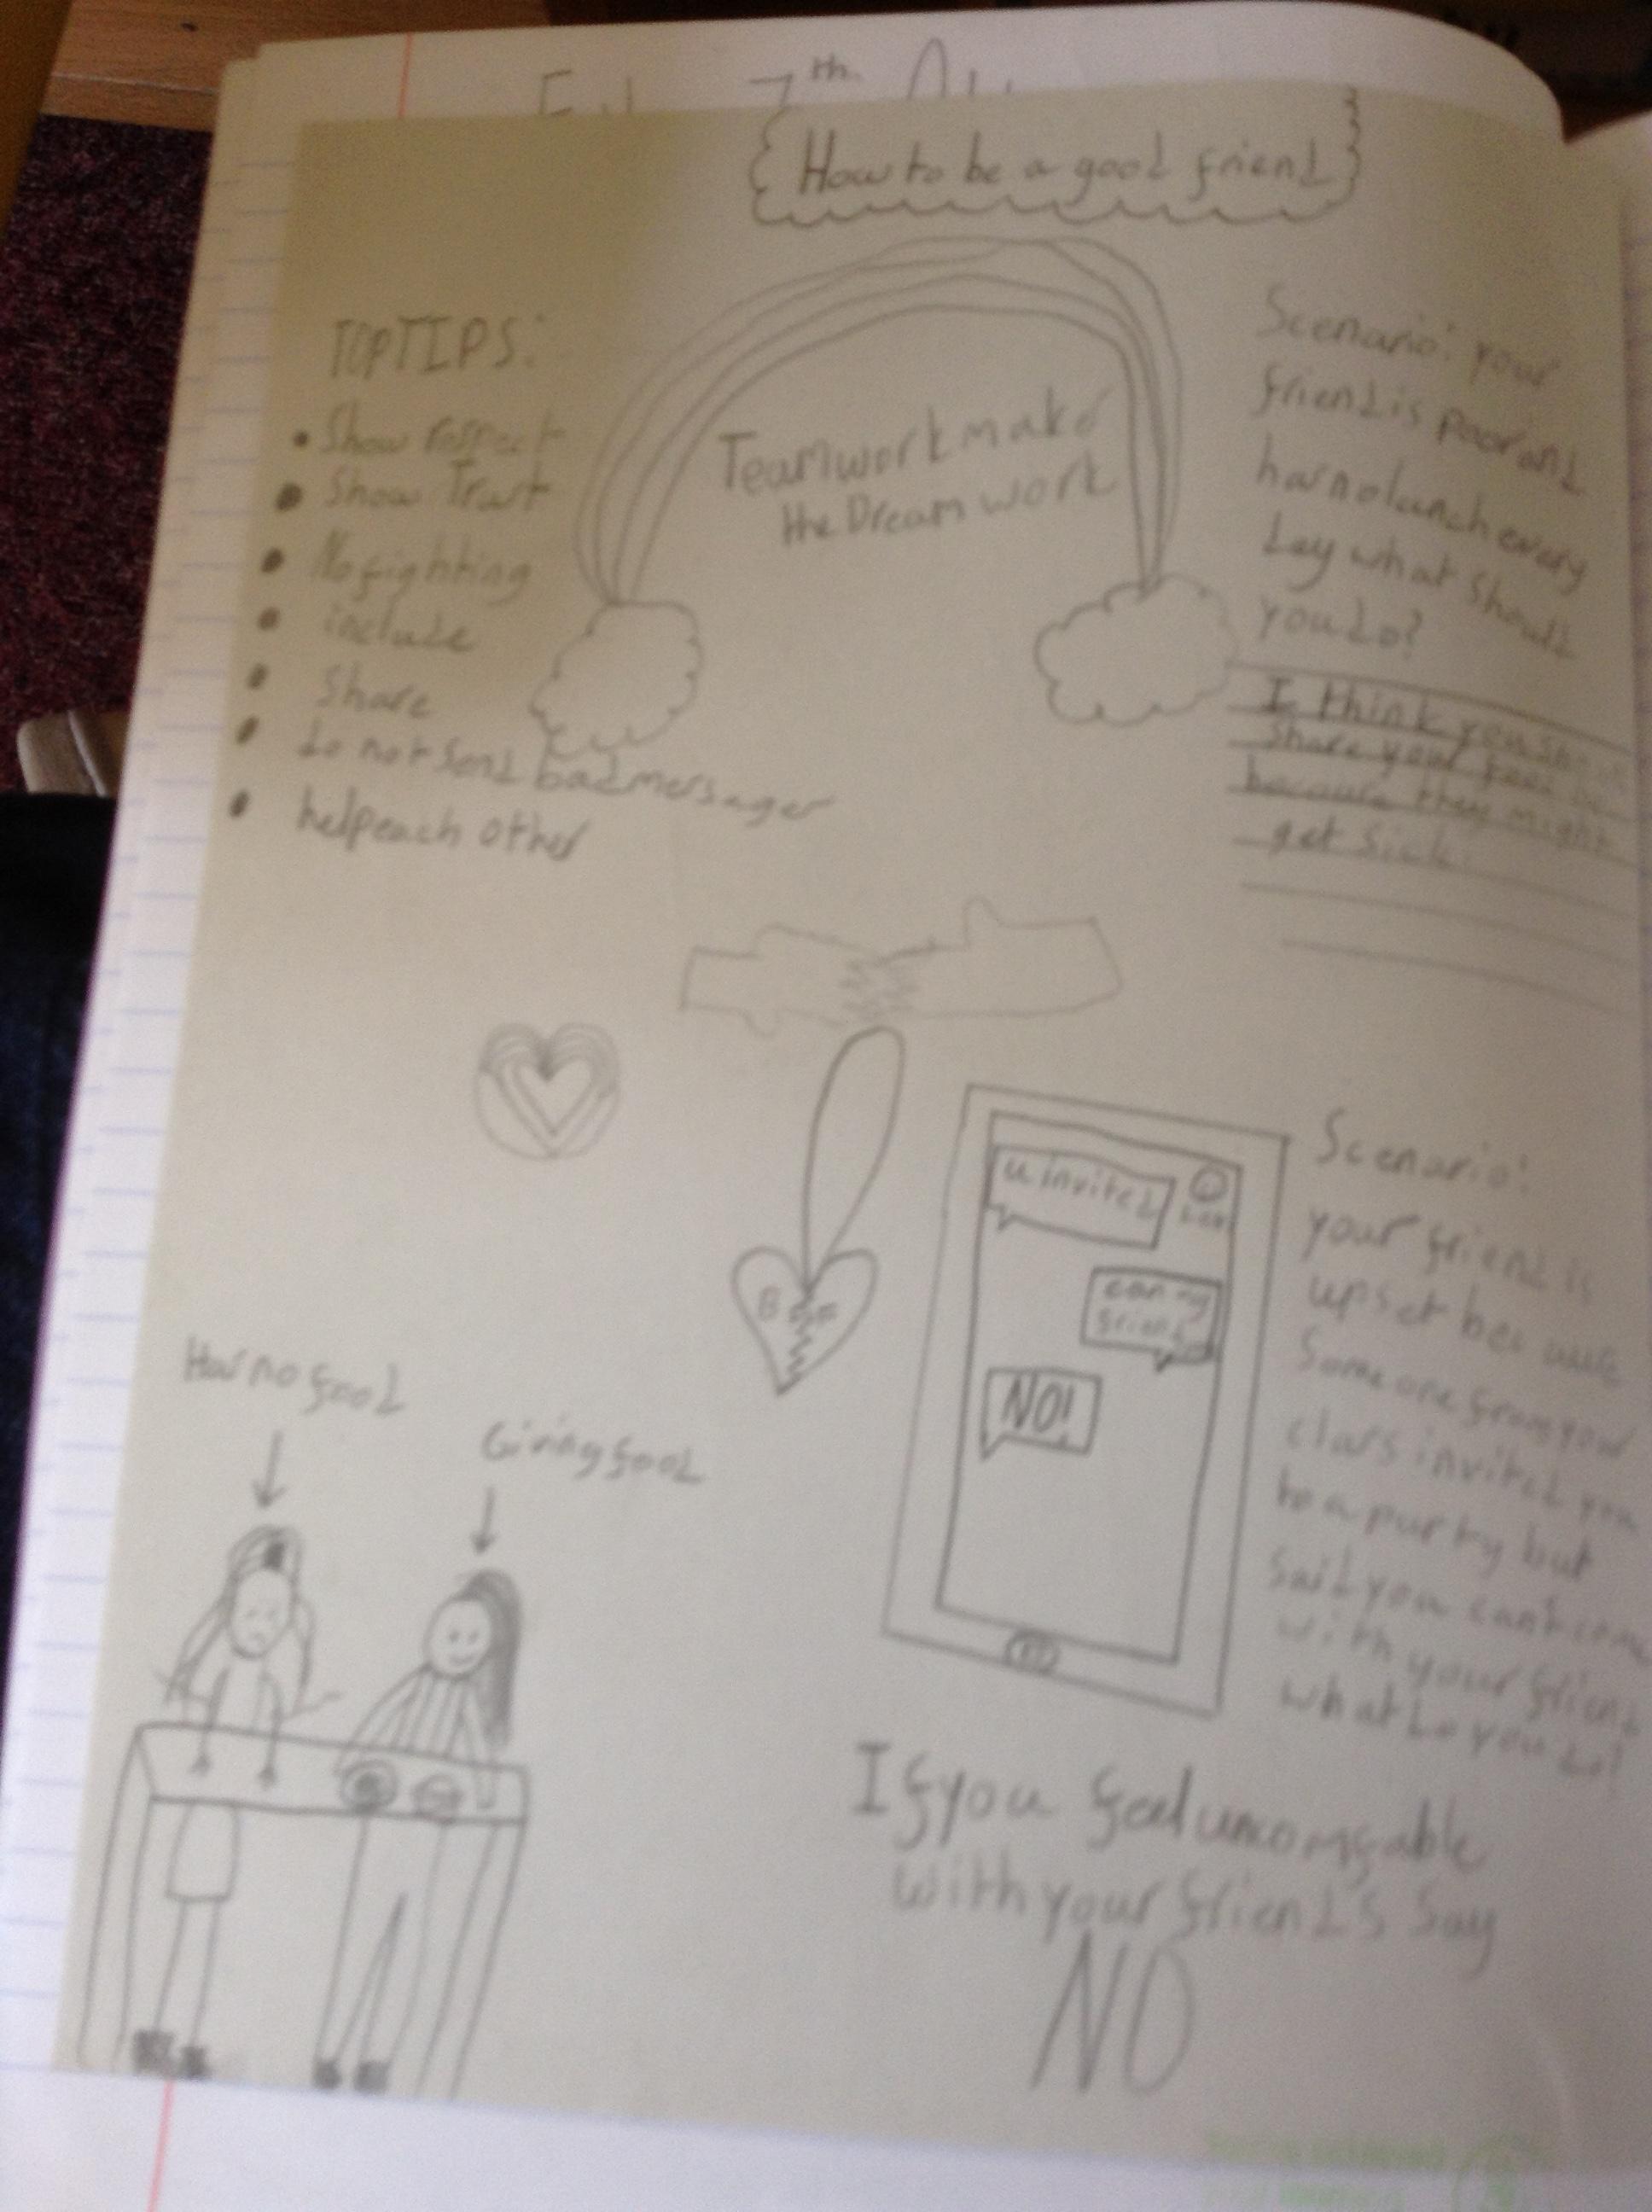 7th
How to be a good friend
TOP TIPS:
• Show respect
• Show Trust
• No fighting
• include
• Share
• do not send bad messages
• help each other
Teamwork make
the Dream work
Scenario: your
friend is poor and
has no lunch every
day what should
you do?
I think you
share your
because they might
get sick.
u invited
can my
friend
NO!
B F
Scenario:
your friend is
upset because
Some one from your
class invited you
to a party but
said you can't come
with your friend
what do you do!
Has no food
Giving food
If you feel uncomfable
with your friend's Say
NO